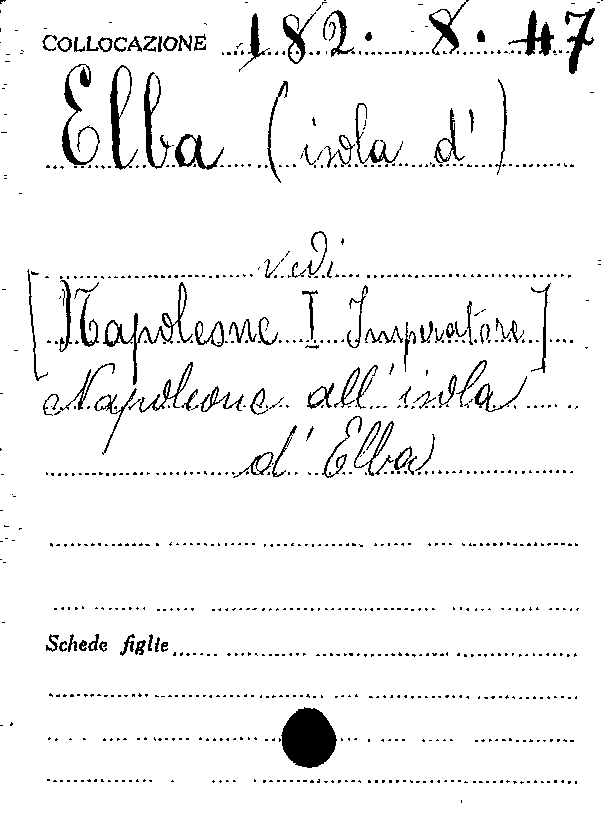 COLLOCAZIONE 182. 8. 47
Elba (isola d')
vedi
[Napoleone I Imperatore]
Napoleone all'isola
d'Elba
Schede figlie